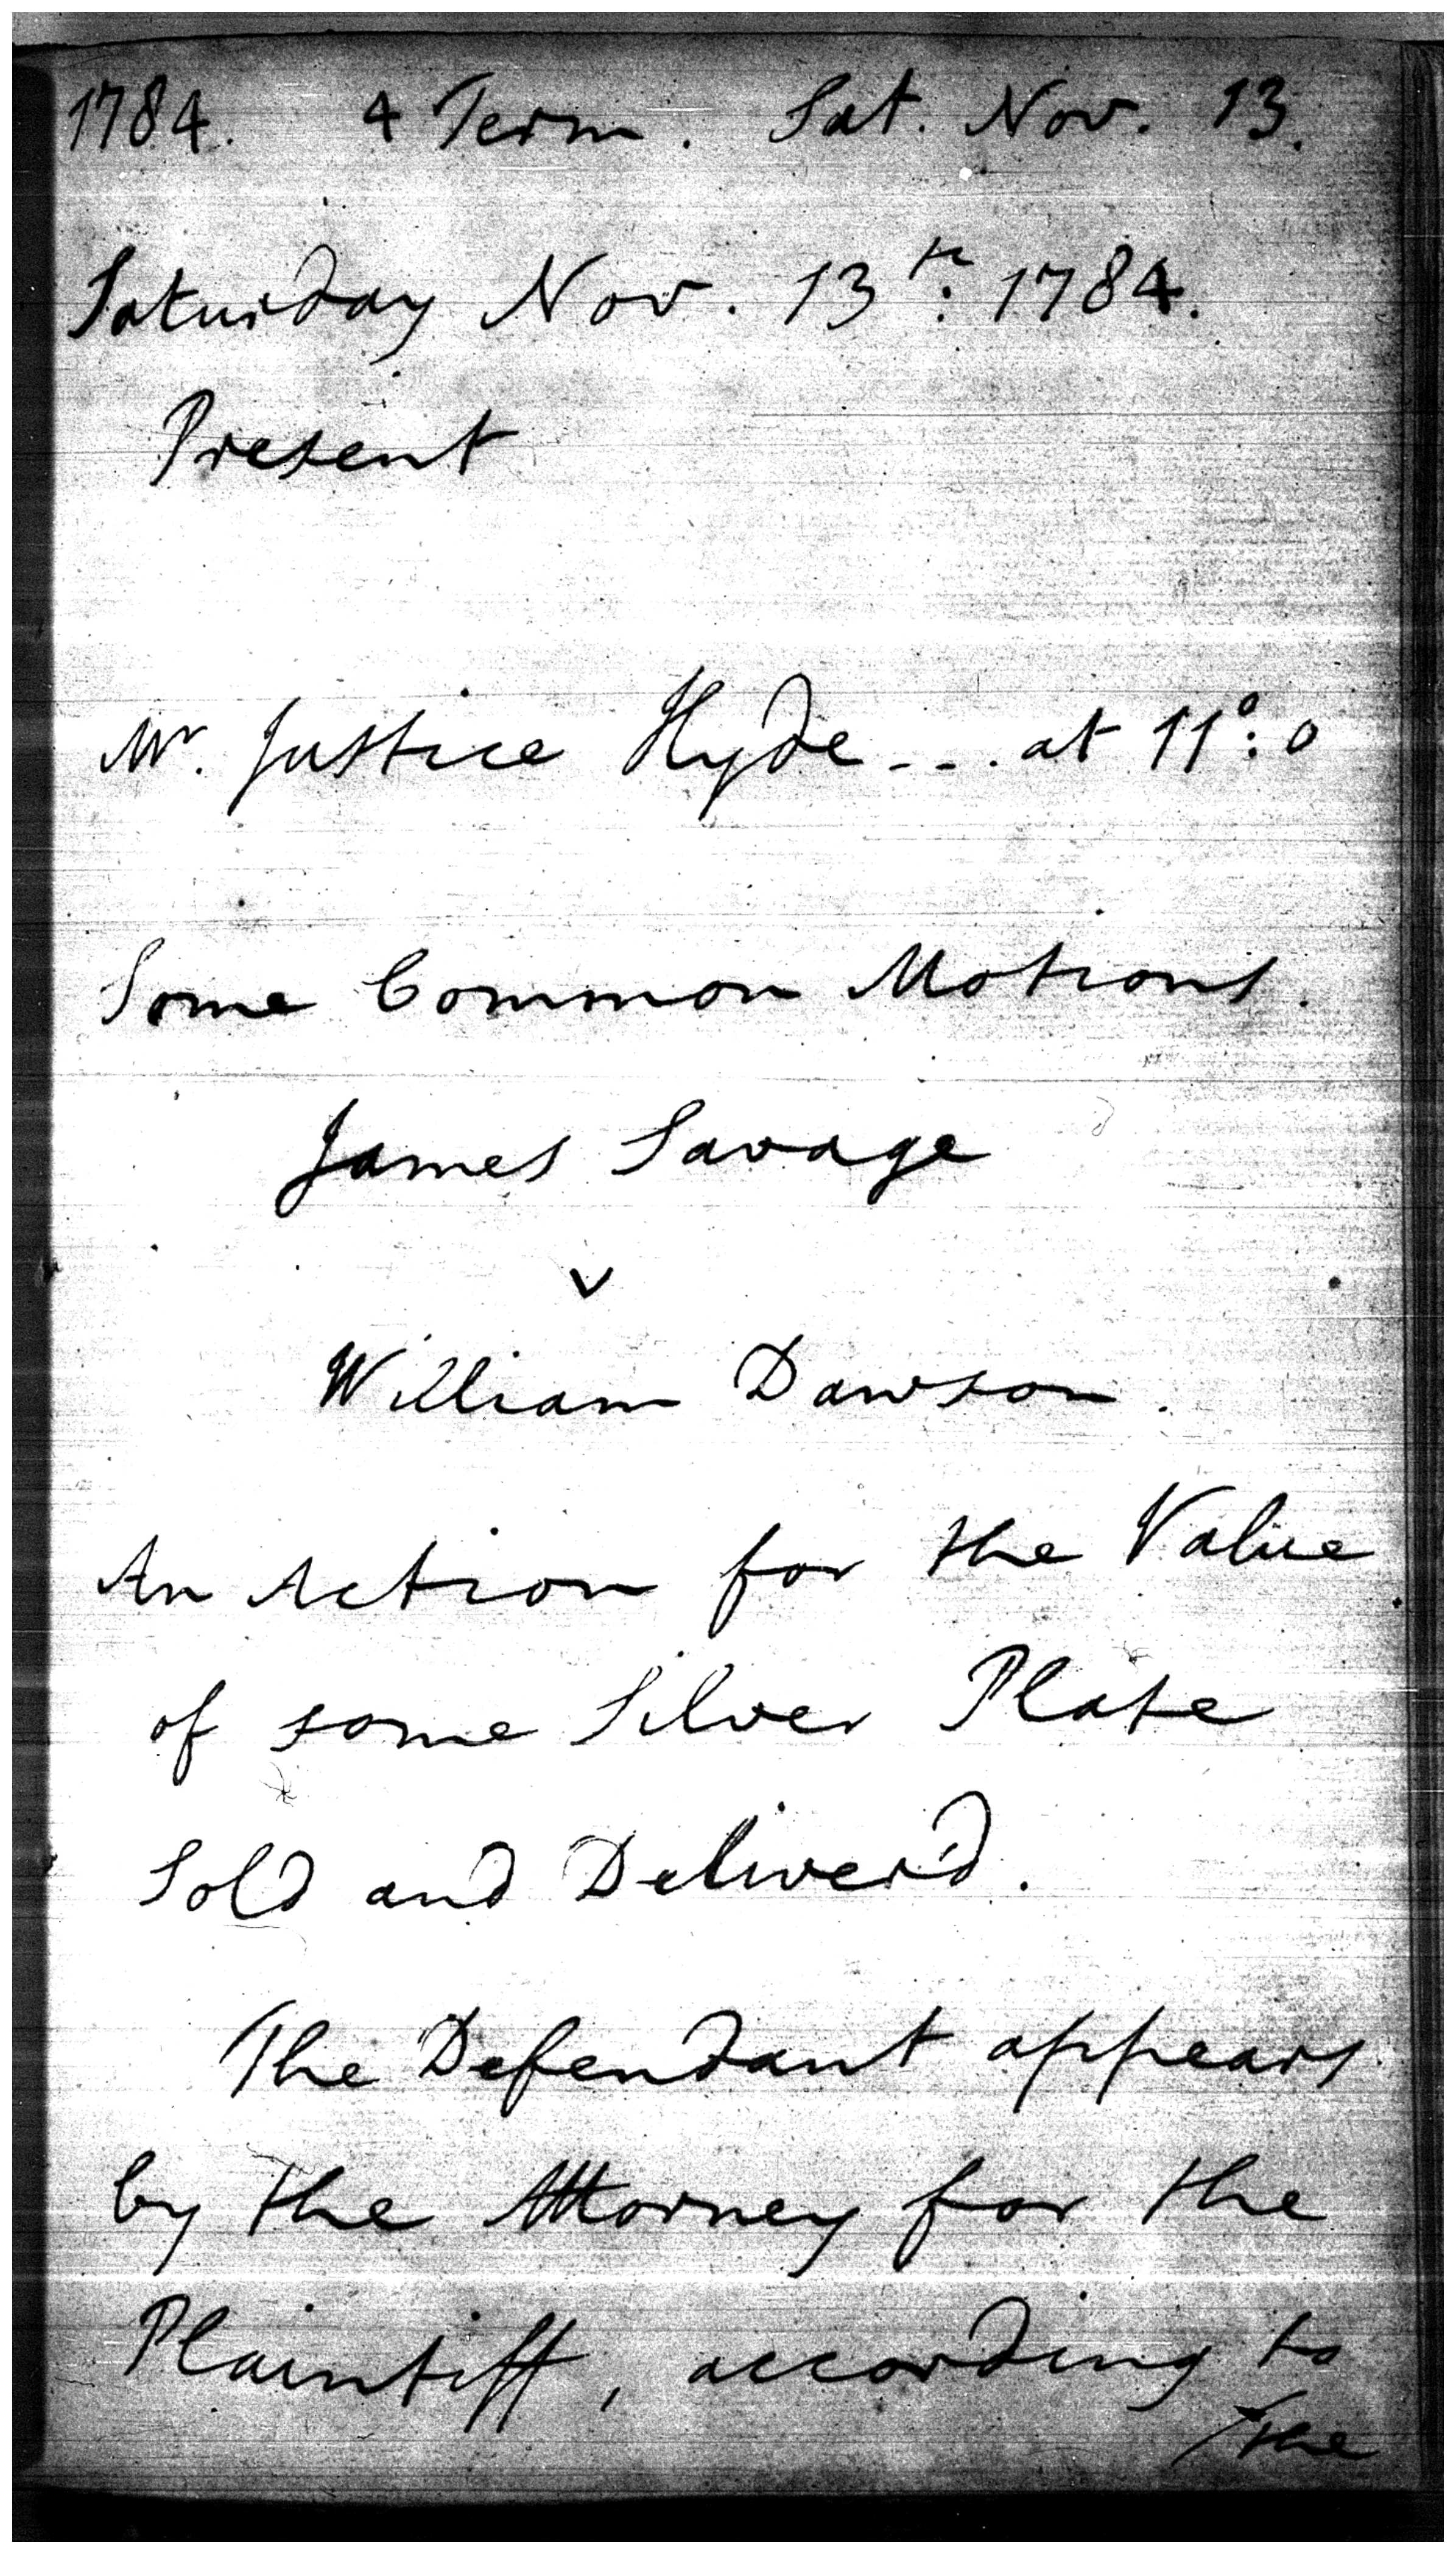 1784. 4 Term. Sat. Nov. 13.
Saturday Nov. 13th: 1784.
Present
Mr. Justice Hyde - - . at 11°: 0
Some Common Motions.
James Savage
v
William Dawson.
An Action for the Value
of some Silver Plate
Sold and Deliver'd.
The Defendant appears
by the Attorney for the
Plaintiff, according to
/the